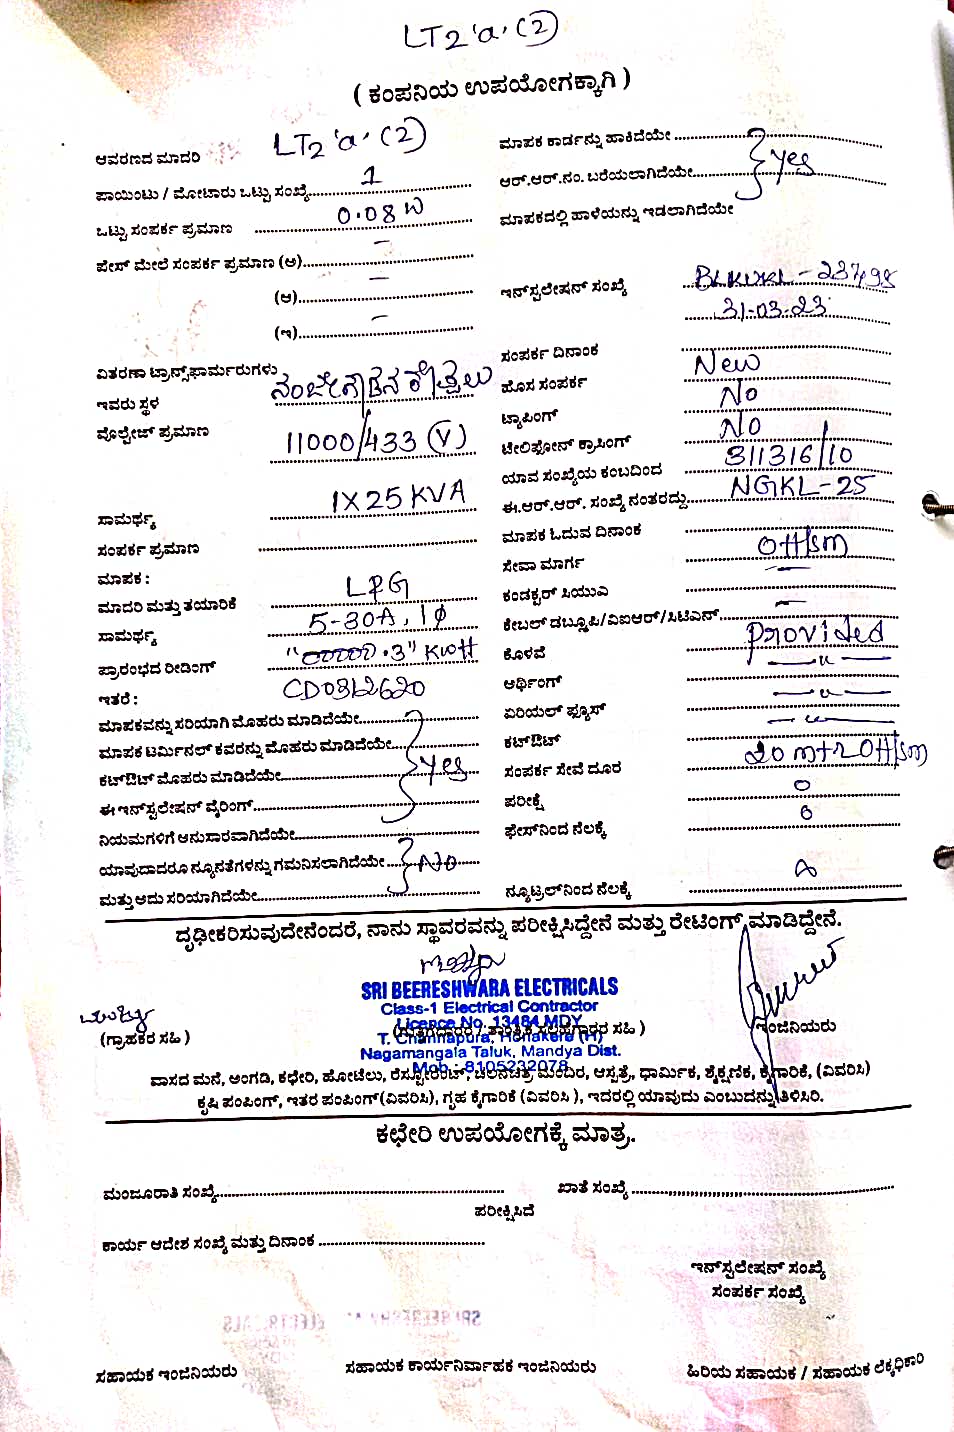 LT2 'a' (2)
( ಕಂಪನಿಯ ಉಪಯೋಗಕ್ಕಾಗಿ )
ಆವರಣದ ಮಾದರಿ LT2 'a' (2)
ಪಾಯಿಂಟು / ಮೋಟಾರು ಒಟ್ಟು ಸಂಖ್ಯೆ 1
ಒಟ್ಟು ಸಂಪರ್ಕ ಪ್ರಮಾಣ 0.08 W
ಪೇಸ್ ಮೇಲೆ ಸಂಪರ್ಕ ಪ್ರಮಾಣ (ಅ) –
(ಆ) –
(ಇ) –
ವಿತರಣಾ ಟ್ರಾನ್ಸ್‌ಫಾರ್ಮರುಗಳು
ಇವರು ಸ್ಥಳ ನಂಜೇಗೌಡನ ಕೊಪ್ಪಲು
ವೊಲ್ಟೇಜ್ ಪ್ರಮಾಣ 11000/433 (V)
ಸಾಮರ್ಥ್ಯ 1X25 KVA
ಸಂಪರ್ಕ ಪ್ರಮಾಣ
ಮಾಪಕ :
ಮಾದರಿ ಮತ್ತು ತಯಾರಿಕೆ L&G
ಸಾಮರ್ಥ್ಯ 5-30A, 1φ
ಪ್ರಾರಂಭದ ರೀಡಿಂಗ್ "00000.3" KWH
ಇತರೆ : CD0312620
ಮಾಪಕವನ್ನು ಸರಿಯಾಗಿ ಮೊಹರು ಮಾಡಿದೆಯೇ
ಮಾಪಕ ಟರ್ಮಿನಲ್ ಕವರನ್ನು ಮೊಹರು ಮಾಡಿದೆಯೇ
ಕಟ್‌ಔಟ್ ಮೊಹರು ಮಾಡಿದೆಯೇ yes
ಈ ಇನ್‌ಸ್ಟಲೇಷನ್ ವೈರಿಂಗ್
ನಿಯಮಗಳಿಗೆ ಅನುಸಾರವಾಗಿದೆಯೇ
ಯಾವುದಾದರೂ ನ್ಯೂನತೆಗಳನ್ನು ಗಮನಿಸಲಾಗಿದೆಯೇ No
ಮತ್ತು ಅದು ಸರಿಯಾಗಿದೆಯೇ
ಮಾಪಕ ಕಾರ್ಡನ್ನು ಹಾಕಿದೆಯೇ
ಆರ್.ಆರ್.ನಂ. ಬರೆಯಲಾಗಿದೆಯೇ yes
ಮಾಪಕದಲ್ಲಿ ಹಾಳೆಯನ್ನು ಇಡಲಾಗಿದೆಯೇ
ಇನ್‌ಸ್ಟಲೇಷನ್ ಸಂಖ್ಯೆ BLKUKL-237498
31-03-23
ಸಂಪರ್ಕ ದಿನಾಂಕ
ಹೊಸ ಸಂಪರ್ಕ New
ಟ್ಯಾಪಿಂಗ್ No
ಟೇಲಿಫೋನ್ ಕ್ರಾಸಿಂಗ್ No
ಯಾವ ಸಂಖ್ಯೆಯ ಕಂಬದಿಂದ 311316/10
ಈ.ಆರ್.ಆರ್. ಸಂಖ್ಯೆ ನಂತರದ್ದು NGKL-25
ಮಾಪಕ ಓದುವ ದಿನಾಂಕ
ಸೇವಾ ಮಾರ್ಗ OH/sm
ಕಂಡಕ್ಟರ್ ಸಿಯುಎ –
ಕೇಬಲ್ ಡಬ್ಲ್ಯೂಪಿ/ವಿಐಆರ್/ಸಿಟಿಎಸ್ –
ಕೊಳವೆ Provided
ಅರ್ಥಿಂಗ್ –"–
ಏರಿಯಲ್ ಫ್ಯೂಸ್ –"–
ಕಟ್‌ಔಟ್ –"–
ಸಂಪರ್ಕ ಸೇವೆ ದೂರ 20 mtr OH/sm
ಪರೀಕ್ಷೆ 0
ಫೇಸ್‌ನಿಂದ ನೆಲಕ್ಕೆ
ನ್ಯೂಟ್ರಲ್‌ನಿಂದ ನೆಲಕ್ಕೆ
ದೃಢೀಕರಿಸುವುದೇನೆಂದರೆ, ನಾನು ಸ್ಥಾವರವನ್ನು ಪರೀಕ್ಷಿಸಿದ್ದೇನೆ ಮತ್ತು ರೇಟಿಂಗ್ ಮಾಡಿದ್ದೇನೆ.
SRI BEERESHWARA ELECTRICALS
Class-1 Electrical Contractor
Licence No. 13484 MDY
T. Channapura, Honakere (H)
Nagamangala Taluk, Mandya Dist.
Mob : 8105232078
(ಗ್ರಾಹಕರ ಸಹಿ )
ಸಹಿ )
ಇಂಜಿನಿಯರು
ವಾಸದ ಮನೆ, ಅಂಗಡಿ, ಕಛೇರಿ, ಹೋಟೆಲು, ರೆಸ್ಟೋರೆಂಟ್, ಚಲನಚಿತ್ರ ಮಂದಿರ, ಆಸ್ಪತ್ರೆ, ಧಾರ್ಮಿಕ, ಶೈಕ್ಷಣಿಕ, ಕೈಗಾರಿಕೆ, (ವಿವರಿಸಿ)
ಕೃಷಿ ಪಂಪಿಂಗ್, ಇತರ ಪಂಪಿಂಗ್(ವಿವರಿಸಿ), ಗೃಹ ಕೈಗಾರಿಕೆ (ವಿವರಿಸಿ ), ಇದರಲ್ಲಿ ಯಾವುದು ಎಂಬುದನ್ನು ತಿಳಿಸಿರಿ.
ಕಛೇರಿ ಉಪಯೋಗಕ್ಕೆ ಮಾತ್ರ.
ಮಂಜೂರಾತಿ ಸಂಖ್ಯೆ
ಖಾತೆ ಸಂಖ್ಯೆ
ಪರೀಕ್ಷಿಸಿದೆ
ಕಾರ್ಯ ಆದೇಶ ಸಂಖ್ಯೆ ಮತ್ತು ದಿನಾಂಕ
ಇನ್‌ಸ್ಟಲೇಷನ್ ಸಂಖ್ಯೆ
ಸಂಪರ್ಕ ಸಂಖ್ಯೆ
ಸಹಾಯಕ ಇಂಜಿನಿಯರು
ಸಹಾಯಕ ಕಾರ್ಯನಿರ್ವಾಹಕ ಇಂಜಿನಿಯರು
ಹಿರಿಯ ಸಹಾಯಕ / ಸಹಾಯಕ ಲೆಕ್ಕಧಿಕಾರಿ